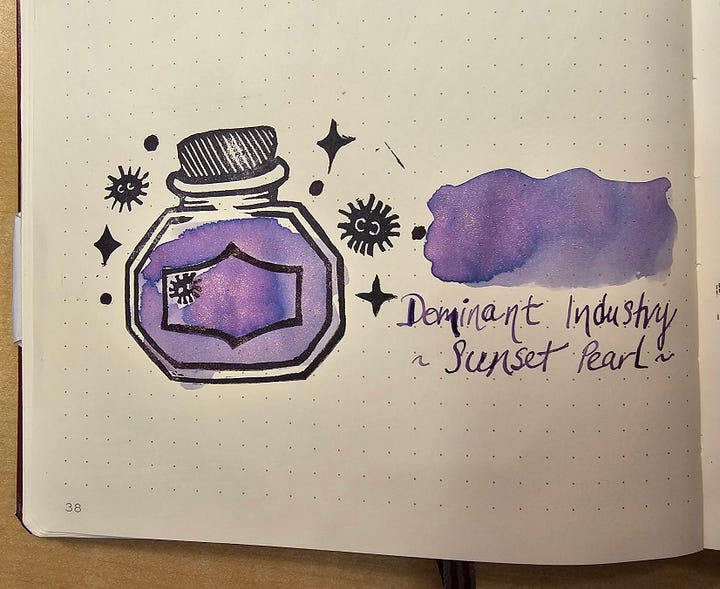 Dominant Industry
~ Sunset Pearl ~
38